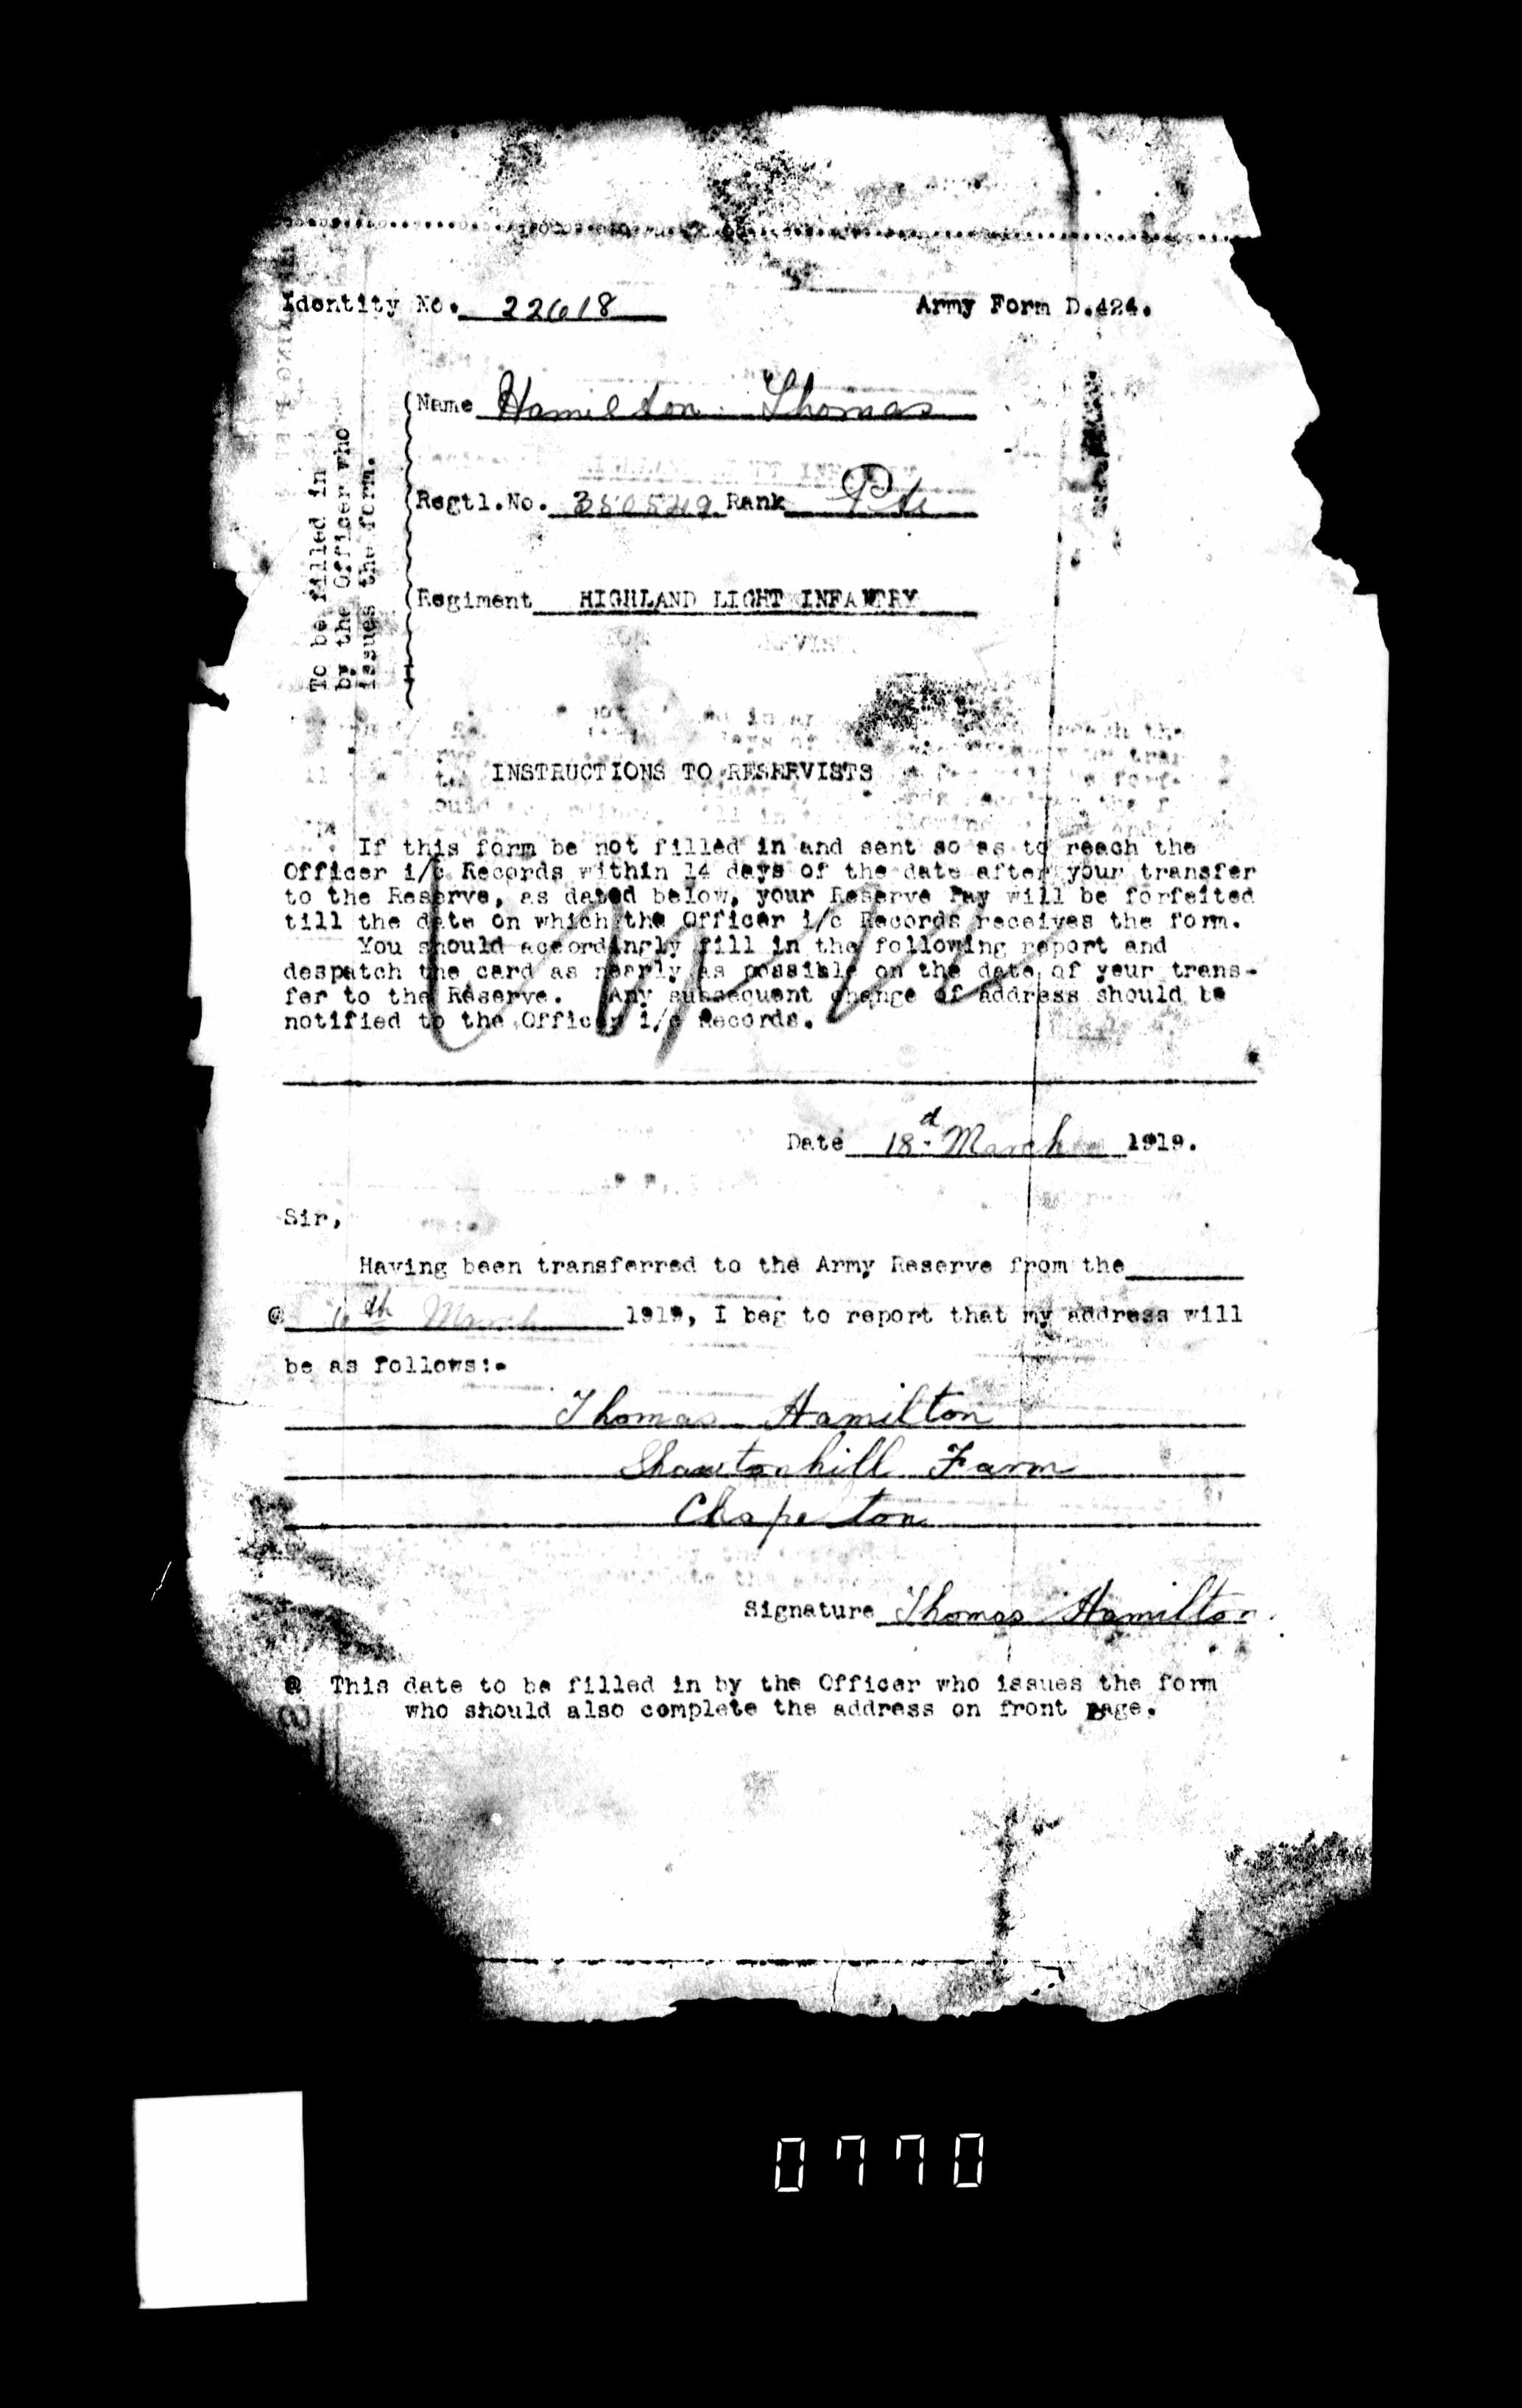 Identity No. 22618
Army Form D.424.
To be filled in
by the Officer who
issues the form.
Name Hamilton Thomas
Regtl.No. Rank Pte
Regiment HIGHLAND LIGHT INFANTRY
INSTRUCTIONS TO RESERVISTS
If this form be not filled in and sent so as to reach the
Officer i/c Records within 14 days of the date after your transfer
to the Reserve, as dated below, your Reserve Pay will be forfeited
till the date on which the Officer i/c Records receives the form.
You should accordingly fill in the following report and
despatch the card as nearly as possible on the date of your trans-
fer to the Reserve. Any subsequent change of address should be
notified to the Officer i/c Records.
Date 18d March 1919.
Sir,
Having been transferred to the Army Reserve from the
@ March 1919, I beg to report that my address will
be as follows:-
Thomas Hamilton
Shawtonhill Farm
Chapelton
Signature Thomas Hamilton
@ This date to be filled in by the Officer who issues the form
who should also complete the address on front page.
0770